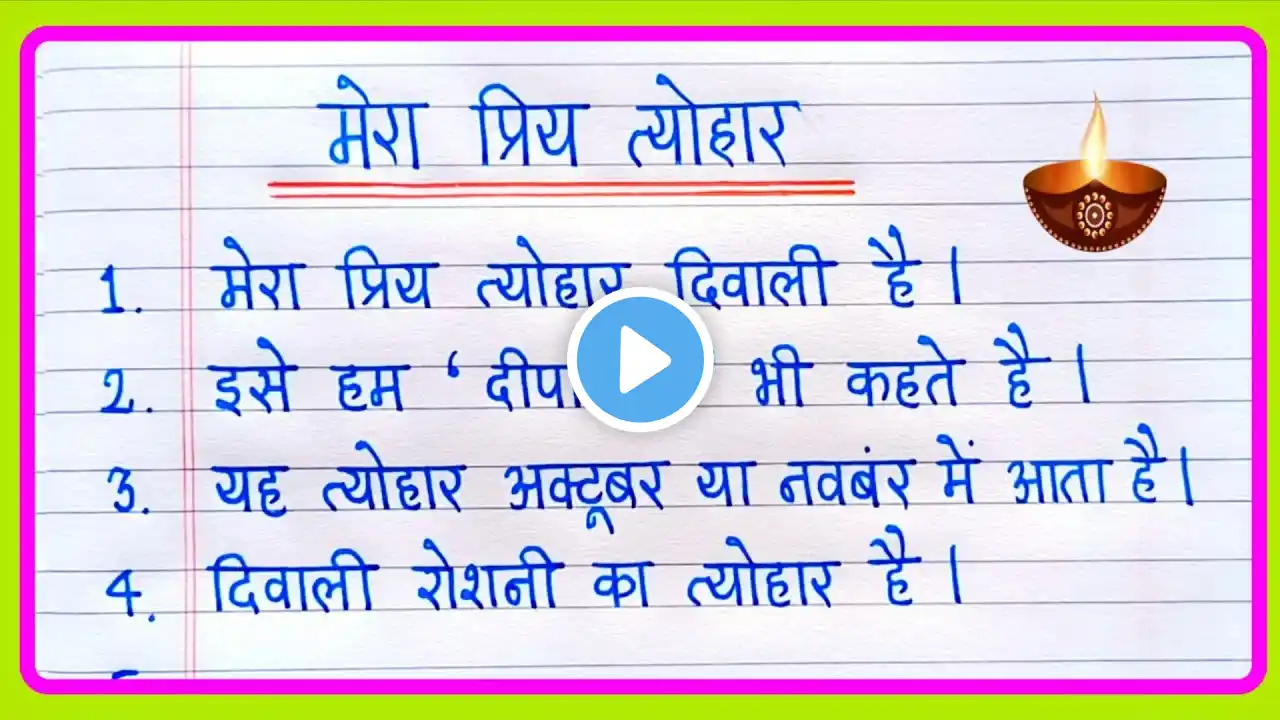 मेरा प्रिय त्योहार
1. मेरा प्रिय त्योहार दिवाली है।
2. इसे हम ‘ भी कहते है।
3. यह त्योहार अक्टूबर या नवबंर में आता है।
4. दिवाली रोशनी का त्योहार है।